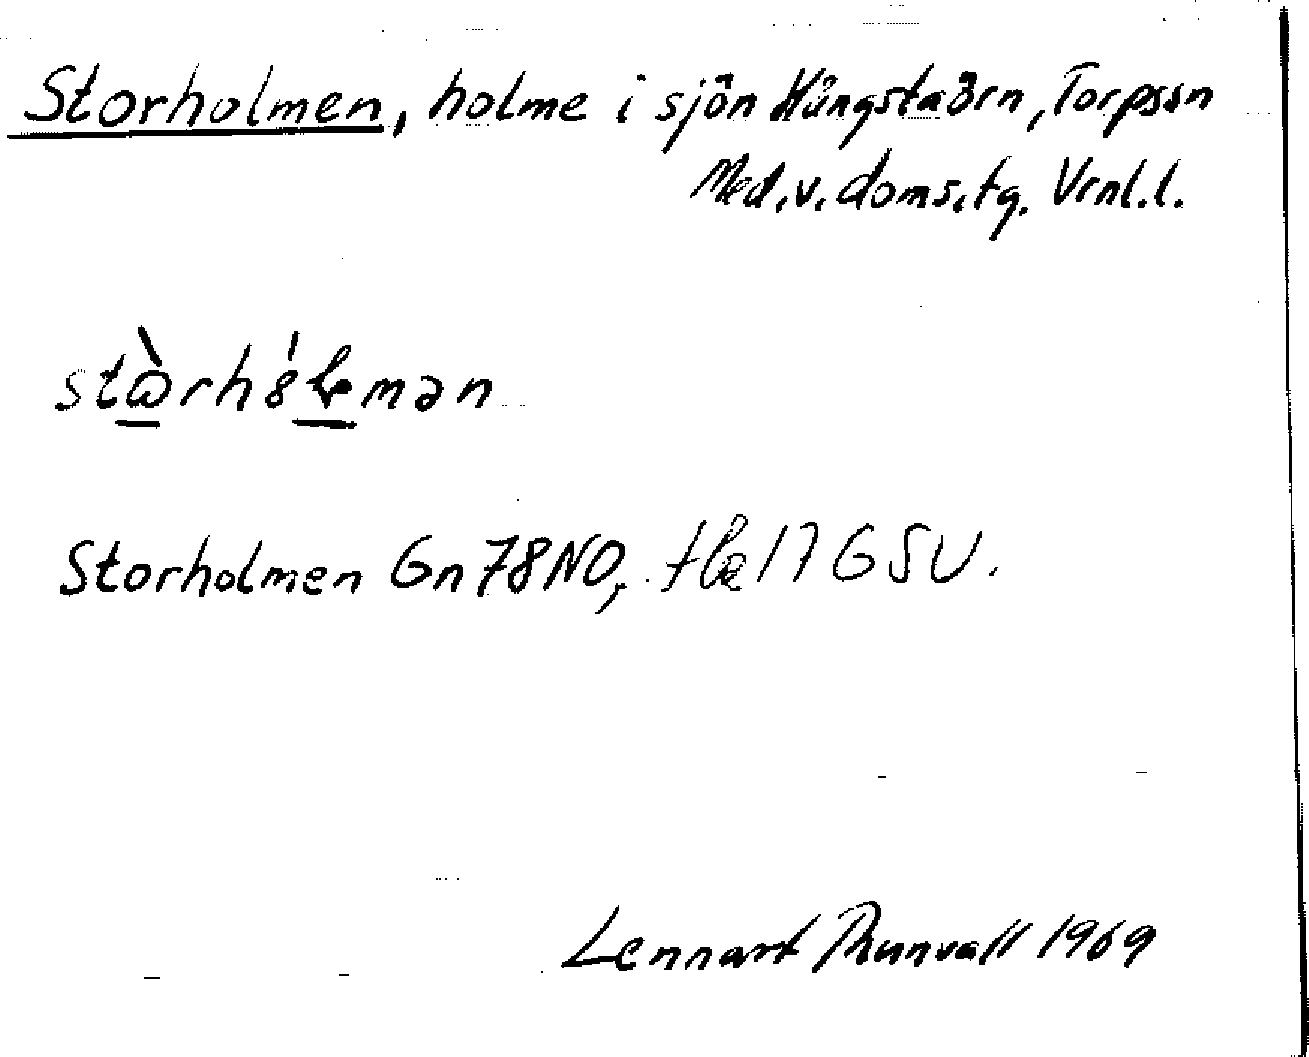 Storholmen, holme i sjön Hängstaörn, Torpssn
Med.v.doms.tg. Vrnl.l.
Storholmen Gn78NO, 17 G SV.
Lennart Thunvall 1969